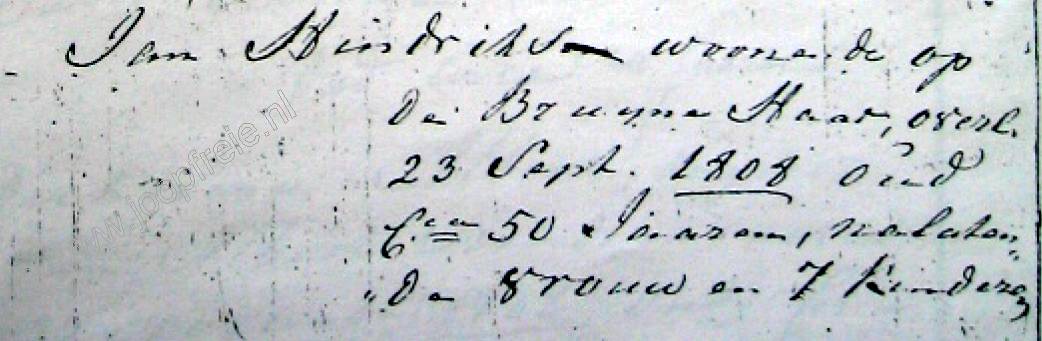 Jan Hindriks woonende op
de Bruyne Haar, overl.
23 Sept. 1808 Oud
C.a 50 Jaaren, nalaten„
„de vrouw en 7 kinderen
www.joopfreje.nl